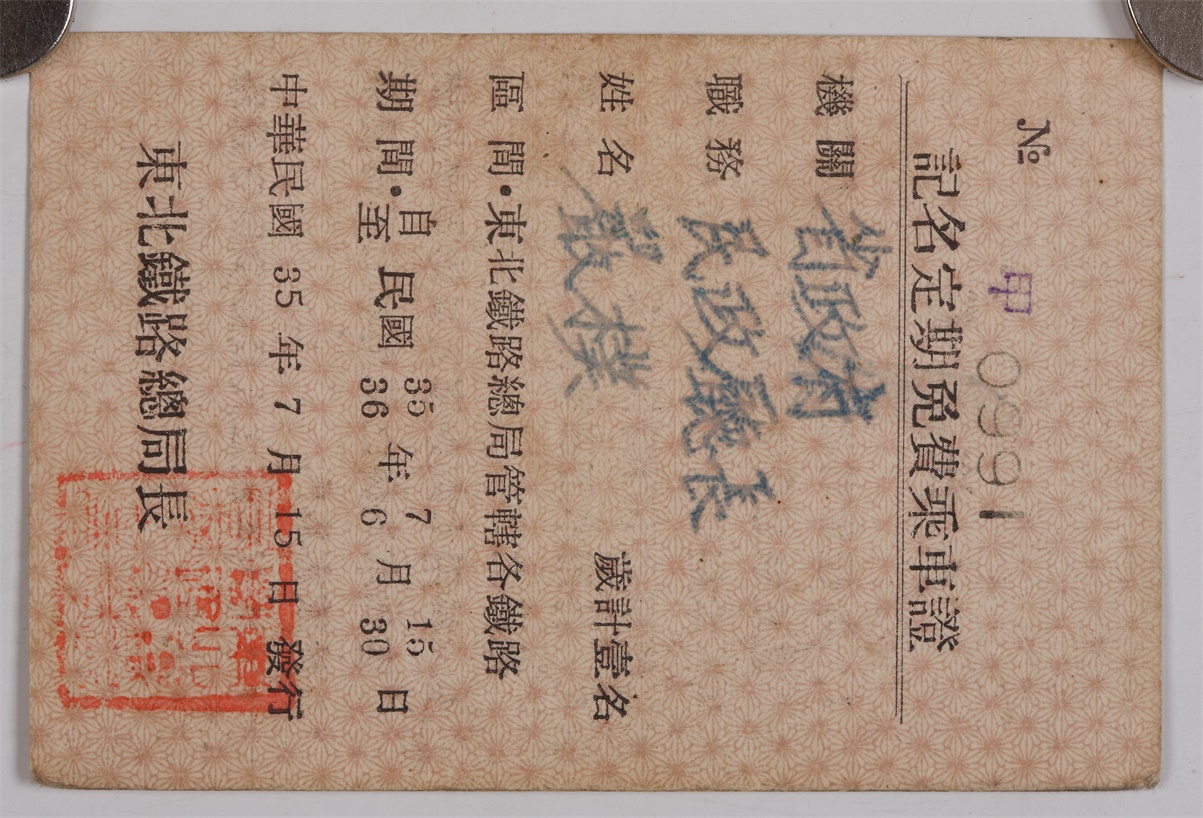 № 甲 0991
記名定期免費乘車證
機關 省政府
職務 民政廳長
姓名 嚴樸 歲計壹名
區間·東北鐵路總局管轄各鐵路
期間·自至 民國 35 36 年 7 6 月 15 30 日
中華民國 35 年 7 月 15 日 發行
東北鐵路總局長